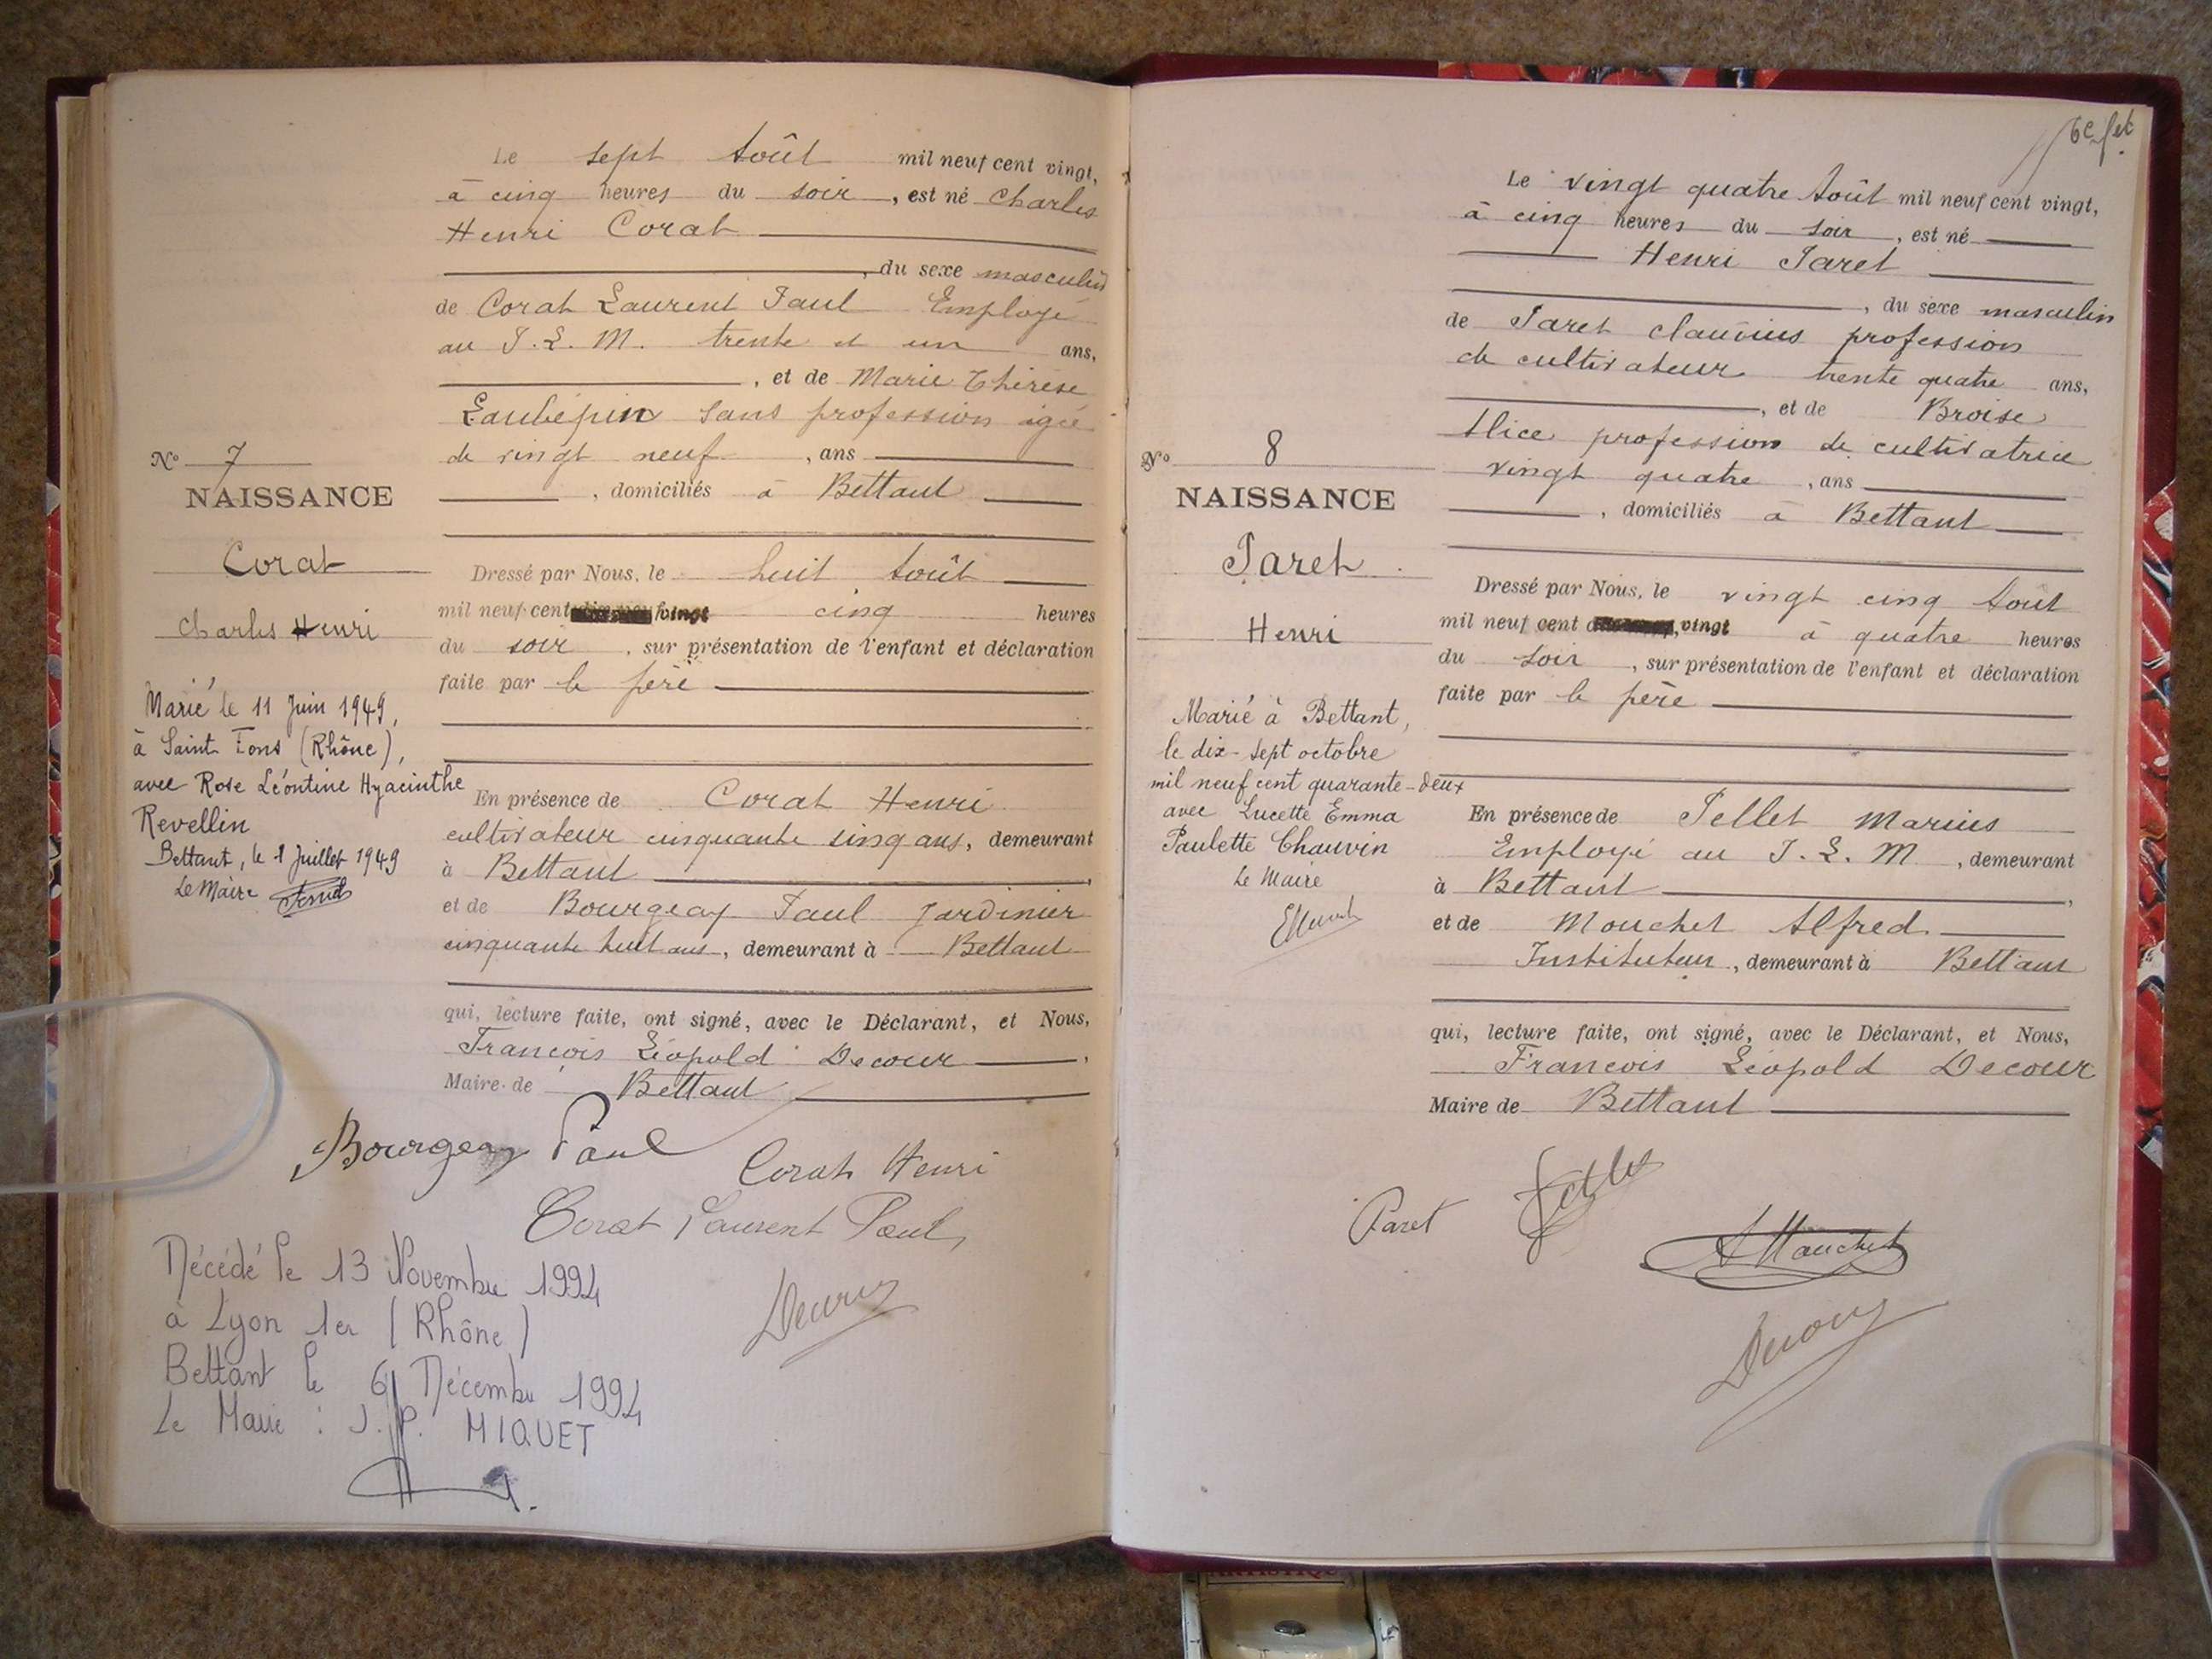 Le sept Août mil neuf cent vingt,
à cinq heures du soir, est né Charles
Henri Corat
, du sexe masculin
de Corat Laurent Paul Employé
au P. L. M. trente et un ans,
, et de Marie Thérèse
Laubépin sans profession agée
de vingt neuf, ans
, domiciliés à Bettant
N° 7
NAISSANCE
Corat
Charles Henri
Dressé par Nous, le huit Août
mil neuf cent vingt cinq heures
du soir, sur présentation de l'enfant et déclaration
faite par le père
Marié le 11 Juin 1949,
à Saint Fons (Rhône),
avec Rose Léontine Hyacinthe
Revellin
Bettant, le 1 Juillet 1949
Le Maire
En présence de Corat Henri
cultivateur cinquante cinq ans, demeurant
à Bettant,
et de Bourgeay Paul Jardinier
cinquante huit ans, demeurant à Bettant
qui, lecture faite, ont signé, avec le Déclarant, et Nous,
François Léopold Decour,
Maire de Bettant
Bourgeay Paul
Corat Henri
Corat Laurent Paul
Décédé le 13 Novembre 1994
à Lyon 1er (Rhône)
Bettant le 6 Décembre 1994
Le Maire : J. P. MIQUET
6e fet
Le vingt quatre Août mil neuf cent vingt,
à cinq heures du soir, est né
Henri Paret
, du sexe masculin
de Paret Claudius profession
de cultivateur trente quatre ans,
, et de Broise
Alice profession de cultivatrice
vingt quatre, ans
, domiciliés à Bettant
N° 8
NAISSANCE
Paret
Henri
Dressé par Nous, le vingt cinq Août
mil neuf cent vingt à quatre heures
du soir, sur présentation de l'enfant et déclaration
faite par le père
Marié à Bettant,
le dix-sept octobre
mil neuf cent quarante-deux
avec Lucette Emma
Paulette Chauvin
Le Maire
En présence de Pellet Marius
Employé au P. L. M, demeurant
à Bettant,
et de Mouchet Alfred
Instituteur, demeurant à Bettant
qui, lecture faite, ont signé, avec le Déclarant, et Nous,
François Léopold Decour
Maire de Bettant
Paret
Pellet
A Mouchet